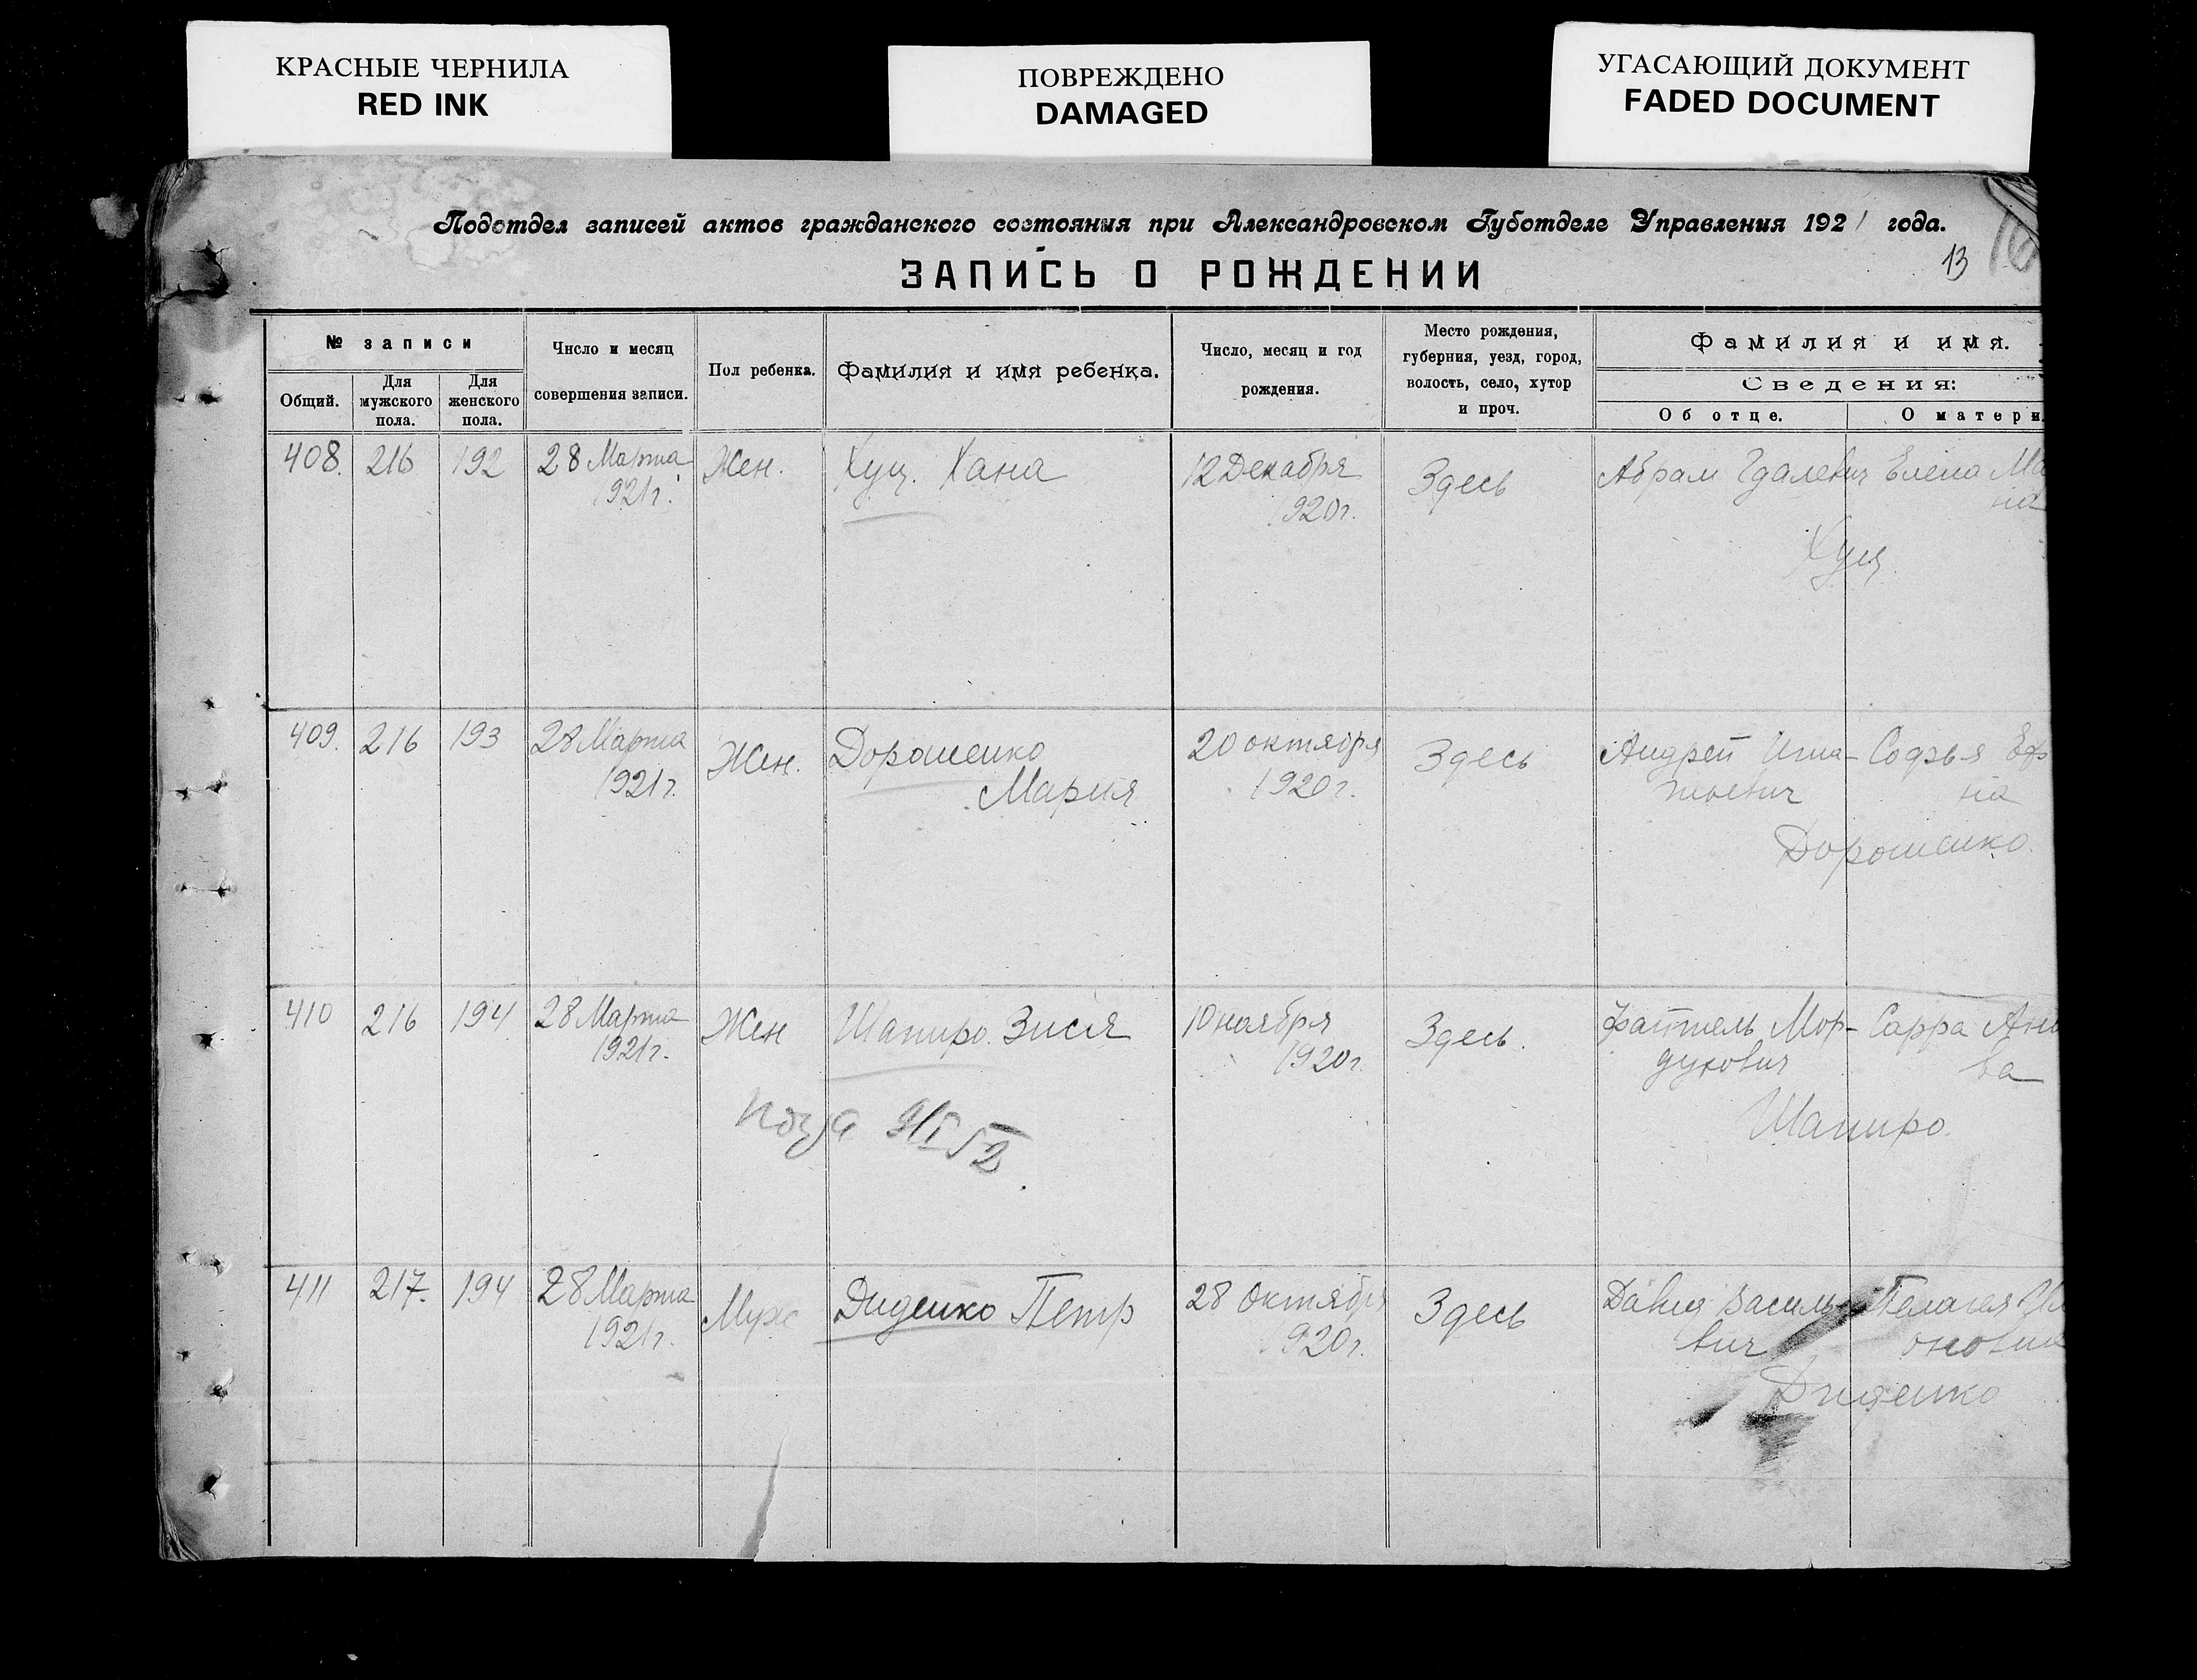 КРАСНЫЕ ЧЕРНИЛА
RED INK
ПОВРЕЖДЕНО
DAMAGED
УГАСАЮЩИЙ ДОКУМЕНТ
FADED DOCUMENT
Подотдел записей актов гражданского состояния при Александровском Губотделе Управления 1921 года.
ЗАПИСЬ О РОЖДЕНИИ
13
№ записи
Общий.
Для мужского пола.
Для женского пола.
Число и месяц
совершения записи.
Пол ребенка.
Фамилия и имя ребенка.
Число, месяц и год
рождения.
Место рождения,
губерния, уезд, город,
волость, село, хутор
и проч.
Фамилия и имя.
Сведения:
Об отце.
О матери.
408. 216 192 28 Марта Жен. Хуц. Хана 12 Декабря Здесь Абрам Гдалевич Елена Ма
1921г. 1920г. на
Хуц
409. 216 193 28 Марта Жен. Дорошенко 20 октября Здесь Андрей Игна- Софья Еф
1921г. Мария 1920г. тьевич на
Дорошенко.
410 216 194 28 Марта Жен Шапиро. Зися 10 ноября Здесь. Файтель Мор- Сарра
1921г. 1920г. духович ва
Шапиро.
411 217. 194 28 Марта Муж Диденко Петр 28 Октября Здесь Давид Василь Пелагея
1921г. 920г. вич
Диденко